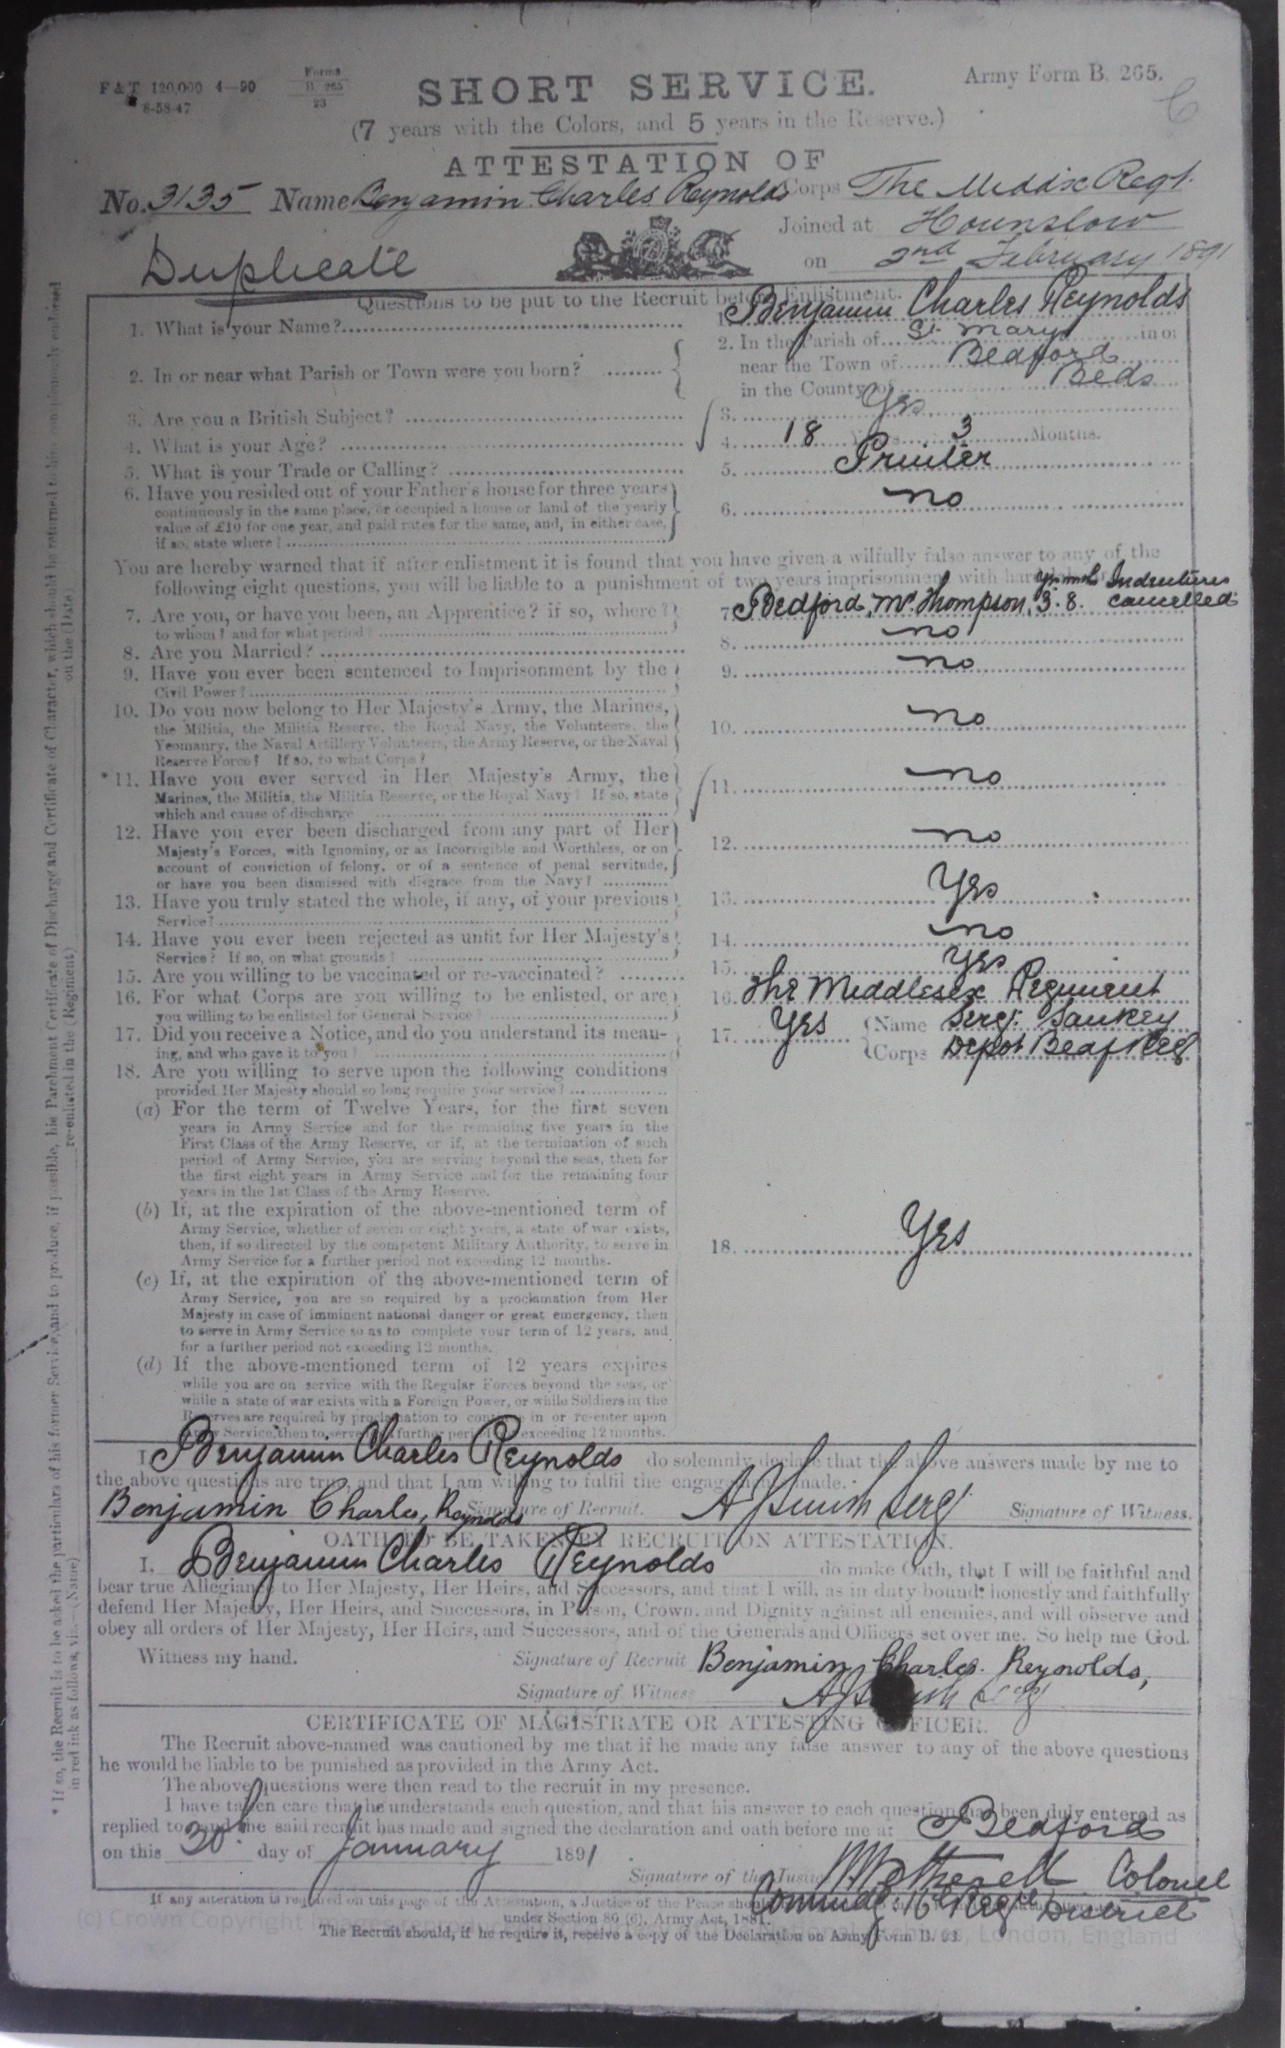 F & T 120,000 4—90
8-58-47
Forms
B. 265
23
SHORT SERVICE.
Army Form B. 265.
6
(7 years with the Colors, and 5 years in the Reserve.)
ATTESTATION OF
No. 3135 Name Benjamin Charles Reynolds Corps The Middx Regt.
Joined at Hounslow
on 2nd February 1891
Duplicate
Questions to be put to the Recruit before Enlistment.
1. What is your Name?
1. Benjamin Charles Reynolds
2. In or near what Parish or Town were you born?
2. In the Parish of St Mary in or
near the Town of Bedford
in the County of Beds
3. Are you a British Subject?
3. Yes
4. What is your Age?
4. 18 Years 3 Months.
5. What is your Trade or Calling?
5. Printer
6. Have you resided out of your Father's house for three years
continuously in the same place, or occupied a house or land of the yearly
value of £10 for one year, and paid rates for the same, and, in either case,
if so, state where?
6. no
You are hereby warned that if after enlistment it is found that you have given a wilfully false answer to any of the
following eight questions, you will be liable to a punishment of two years imprisonment with hard
7. Are you, or have you been, an Apprentice? if so, where?
to whom? and for what period?
7. Bedford, Mr Thompson, 3 . 8. Indentures cancelled
8. Are you Married?
8. no
9. Have you ever been sentenced to Imprisonment by the
Civil Power?
9. no
10. Do you now belong to Her Majesty's Army, the Marines,
the Militia, the Militia Reserve, the Royal Navy, the Volunteers, the
Yeomanry, the Naval Artillery Volunteers, the Army Reserve, or the Naval
Reserve Force? If so, to what Corps?
10. no
*11. Have you ever served in Her Majesty's Army, the
Marines, the Militia, the Militia Reserve, or the Royal Navy? If so, state
which and cause of discharge
11. no
12. Have you ever been discharged from any part of Her
Majesty's Forces, with Ignominy, or as Incorrigible and Worthless, or on
account of conviction of felony, or of a sentence of penal servitude,
or have you been dismissed with disgrace from the Navy?
12. no
13. Have you truly stated the whole, if any, of your previous
Service?
13. Yes
14. Have you ever been rejected as unfit for Her Majesty's
Service? If so, on what grounds?
14. no
15. Are you willing to be vaccinated or re-vaccinated?
15. Yes
16. For what Corps are you willing to be enlisted, or are
you willing to be enlisted for General Service?
16. The Middlesex Regiment
17. Did you receive a Notice, and do you understand its mean-
ing, and who gave it to you?
17. Yes Name Sergt. Sankey
Corps Depot Bedf Reg
18. Are you willing to serve upon the following conditions
provided Her Majesty should so long require your service?
(a) For the term of Twelve Years, for the first seven
years in Army Service and for the remaining five years in the
First Class of the Army Reserve, or if, at the termination of such
period of Army Service, you are serving beyond the seas, then for
the first eight years in Army Service and for the remaining four
years in the 1st Class of the Army Reserve.
(b) If, at the expiration of the above-mentioned term of
Army Service, whether of seven or eight years, a state of war exists,
then, if so directed by the competent Military Authority, to serve in
Army Service for a further period not exceeding 12 months.
18. Yes
(c) If, at the expiration of the above-mentioned term of
Army Service, you are so required by a proclamation from Her
Majesty in case of imminent national danger or great emergency, then
to serve in Army Service so as to complete your term of 12 years, and
for a further period not exceeding 12 months.
(d) If the above-mentioned term of 12 years expires
while you are on service with the Regular Forces beyond the seas, or
while a state of war exists with a Foreign Power, or while Soldiers in the
Reserves are required by proclamation to continue in or re-enter upon
Army Service, then to serve for a further period not exceeding 12 months.
I, Benjamin Charles Reynolds do solemnly declare that the above answers made by me to
the above questions are true, and that I am willing to fulfil the engagements made.
Benjamin Charles, Reynolds Signature of Recruit. Sergt Signature of Witness.
OATH TO BE TAKEN BY RECRUIT ON ATTESTATION.
I, Benjamin Charles Reynolds do make Oath, that I will be faithful and
bear true Allegiance to Her Majesty, Her Heirs, and Successors, and that I will, as in duty bound, honestly and faithfully
defend Her Majesty, Her Heirs, and Successors, in Person, Crown, and Dignity against all enemies, and will observe and
obey all orders of Her Majesty, Her Heirs, and Successors, and of the Generals and Officers set over me. So help me God.
Witness my hand. Signature of Recruit Benjamin Charles. Reynolds,
Signature of Witness
CERTIFICATE OF MAGISTRATE OR ATTESTING OFFICER.
The Recruit above-named was cautioned by me that if he made any false answer to any of the above questions
he would be liable to be punished as provided in the Army Act.
The above questions were then read to the recruit in my presence.
I have taken care that he understands each question, and that his answer to each question has been duly entered as
replied to, and the said recruit has made and signed the declaration and oath before me at Bedford
on this 30th day of January 1891
Signature of the Justice Colonel
Commdg. 16th Regtl District
If any alteration is required on this page of the Attestation, a Justice of the Peace
under Section 80 (6), Army Act, 1881.
The Recruit should, if he require it, receive a copy of the Declaration on Army Form B. 93.
(c) Crown Copyright National Archives, London, England
* If so, the Recruit is to be asked the particulars of his former Service, and to produce, if possible, his Parchment Certificate of Discharge and Certificate of Character, which should be returned to him conspicuously endorsed
in red ink as follows, viz.—(Name) re-enlisted in the (Regiment) on the (Date)